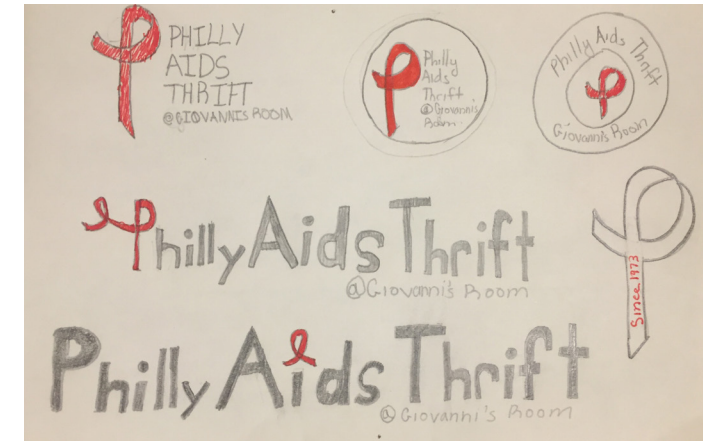 PHILLY
AIDS
THRIFT
@GIOVANNIS ROOM
Philly
Aids
Thrift
@Giovannis
Room
Philly Aids Thrift
Giovanni's Room
Philly Aids Thrift
@Giovanni's Room
Since 1973
Philly Aids Thrift
@Giovanni's Room